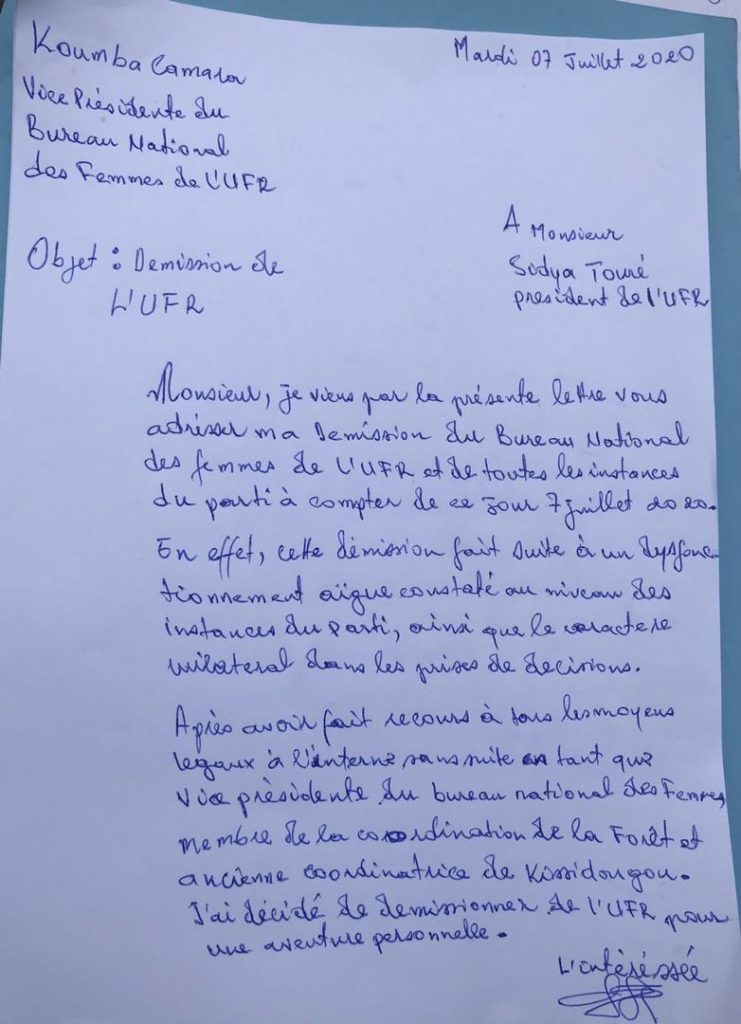 Mardi 07 Juillet 2020
Koumba Camara
Vice Présidente du
Bureau National
des Femmes de L'UFR
A Monsieur
Sidya Touré
president de l'UFR
Objet : Demission de
L'UFR
Monsieur, je viens par la présente lettre vous
adrésser ma Demission du Bureau National
des femmes de L'UFR et de toutes les instances
du parti à compter de ce jour 7 juillet 2020.
En effet, cette démission fait suite à un dysfonc
tionnement aïgue constaté au niveau des
instances du parti, ainsi que le caractere
unilateral dans les prises de decisions.
Après avoir fait recours à tous les moyens
legaux à l'interne sans suite en tant que
Vice présidente du bureau national des Femmes,
membre de la coordination de la Forêt et
ancienne coordinatrice de Kissidougou.
J'ai décidé de demissionner de l'UFR pour
une aventure personnelle.
L'intéréssée